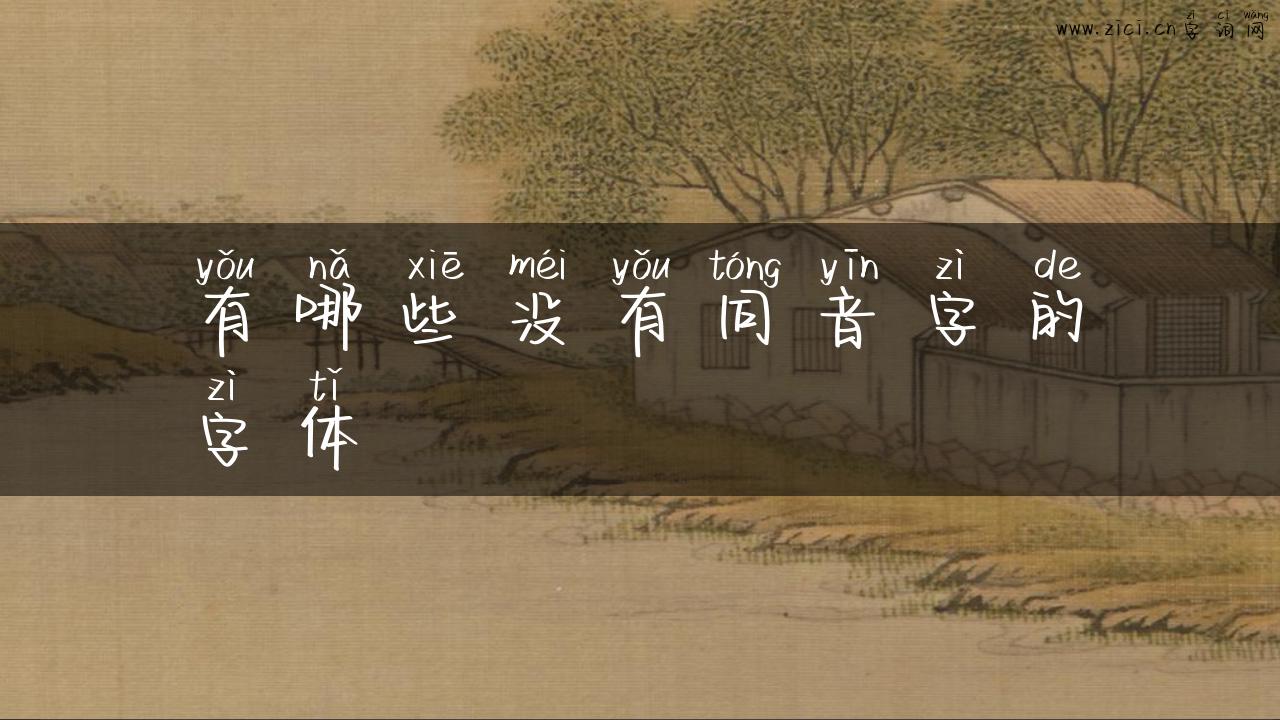 www.zici.cn 字词网
zì cí wǎng
yǒu nǎ xiē méi yǒu tóng yīn zì de
有哪些没有同音字的
zì tǐ
字体